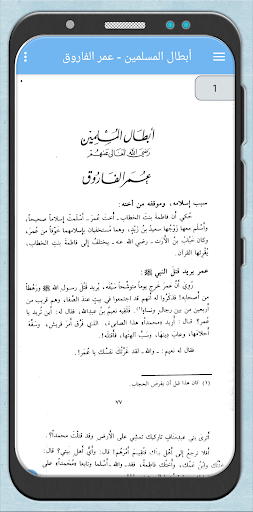 أبطال المسلمين - عمر الفاروق
1
أبطال المسلمين
رضي الله تعالى عنهم
عمر الفاروق
سبب إسلامه، وموقفه من أخته:
حُكي أن فاطمة بنت الخطاب، أخت عمر، أسلمتْ إسلاماً صحيحاً،
وأسلم معها زوجُها سعيدُ بنُ زيدٍ، وهما مستخفيان بإسلامهما خوفاً من عمر،
وكان خبّابُ بنُ الأرَت - رضي الله عنه - يختلفُ إلى فاطمةَ بنتِ الخطاب،
يُقرئها القرآن.
عمر يريد قتل النبي ﷺ:
رُوِيَ أنّ عمرَ خرج يوماً متوشّحاً سيفَه، يُريد قتلَ رسول الله ﷺ ورهْطاً
من أصحابه! فذكروا له أنهم قد اجتمعوا في بيتٍ عندَ الصّفا، وهم قريب من
أربعين من بين رجالٍ ونساء(١)، فلقيَه نعيمُ بنُ عبدالله، فقال له: أين تريد يا
عُمر؟ قال: أريد «محمداً» هذا الصابىء، الذي فرّق أمرَ قريش، وسفّهَ
أحلامَها، وعابَ دينَها، وسبّ آلهتَها، فأقتله!
فقال له نعيم: - والله - لقد غرّتْكَ نفسُك يا عُمر!.
(١) كان هذا قبل أن يفرض الحجاب.
٧٧
أترى بني عبدمناف تاركيك تمشي على الأرض وقد قتلتَ محمداً؟.
أفلا ترجعُ إلى أهْل بيتك فتُقيم أمرَهم! قال: وأيّ أهل بيتي؟ قال: